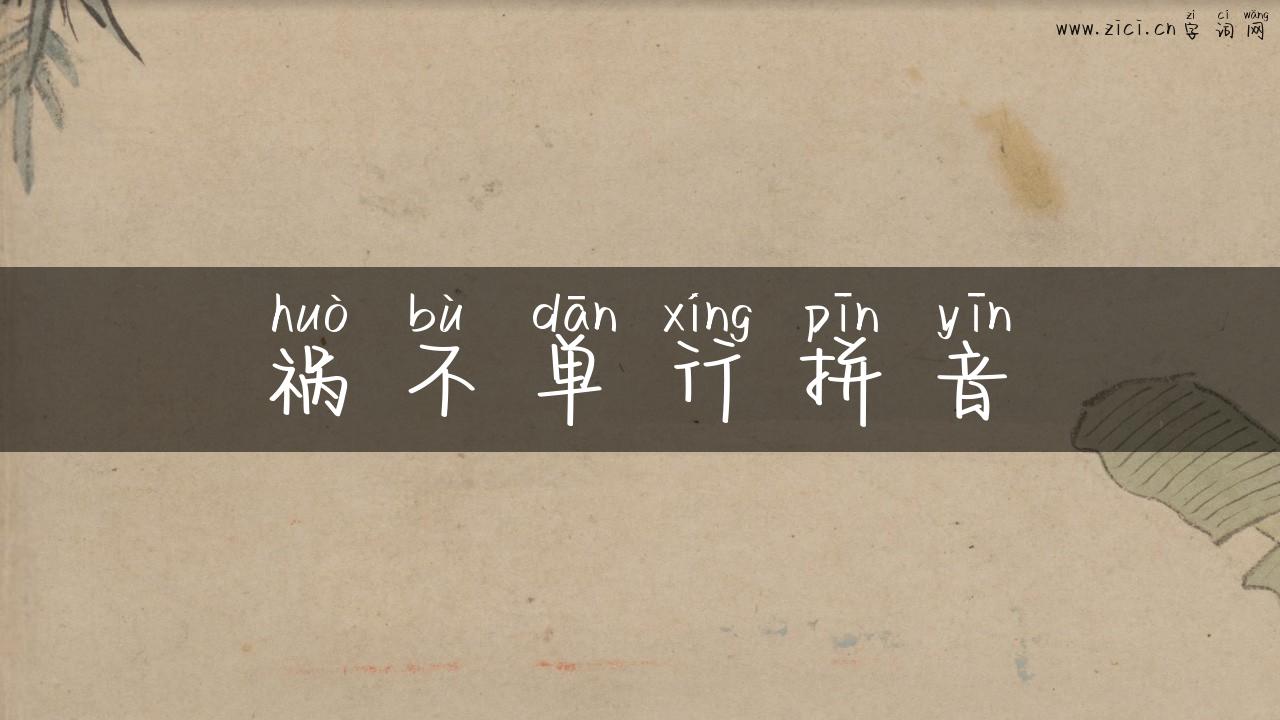 zì cí wǎng
www.zici.cn 字 词 网
huò bù dān xíng pīn yīn
祸 不 单 行 拼 音